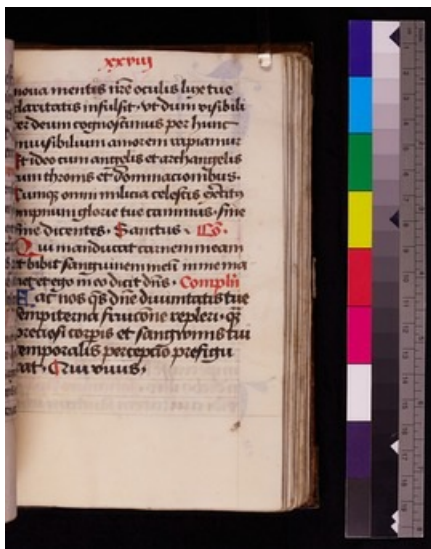 xxviij
noua mentis nr̄e oculis lux tue
claritatis infulsit · vt dum visibili
ter deum cognoscimus per hunc
inuisibilium amorem rapiamur
Et ideo cum angelis et archangelis
cum thronis et dominacionibus ·
Cumque omni milicia celestis exercitus
ympnum glorie tue canimus · sine
fine dicentes · Sanctus · Cō ·
Qui manducat carnem meam
et bibit sanguinem meū in me ma
net et ego in eo dicit dn̄s · Complin̄
Fac nos qs̄ dn̄e diuinitatis tue
sempiterna fruicōne repleri · q̄
preciosi corpis et sanguinis tui
temporalis percepcio prefigu
rat · Qui viuis ·